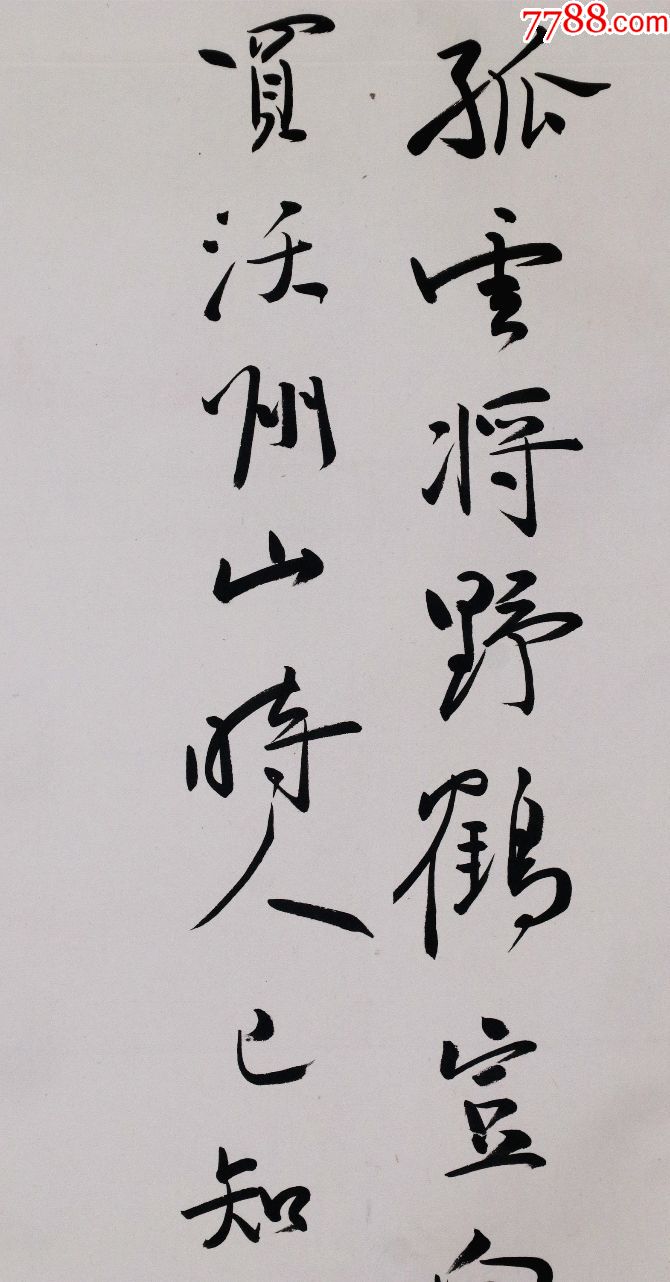 7788.com
孤雲将野鶴豈
買沃州山時人已知